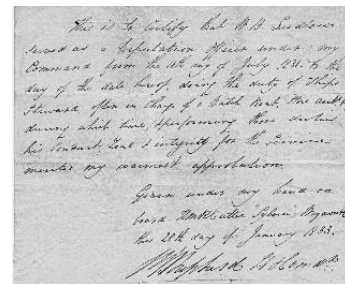 This is to Certify that W. B. Ludlow
served as a Deputation Officer under my
Command from the 11th day of July 1831 to the
day of the date hereof, doing the duty of Ship's
Steward often in Charge of a Watch Boat, &c
during which time, performing those duties
his Conduct, Zeal & integrity for the Service
merited my warmest approbation
Given under my hand on
board Cutter Sylvia
this 28th day of January 1833.